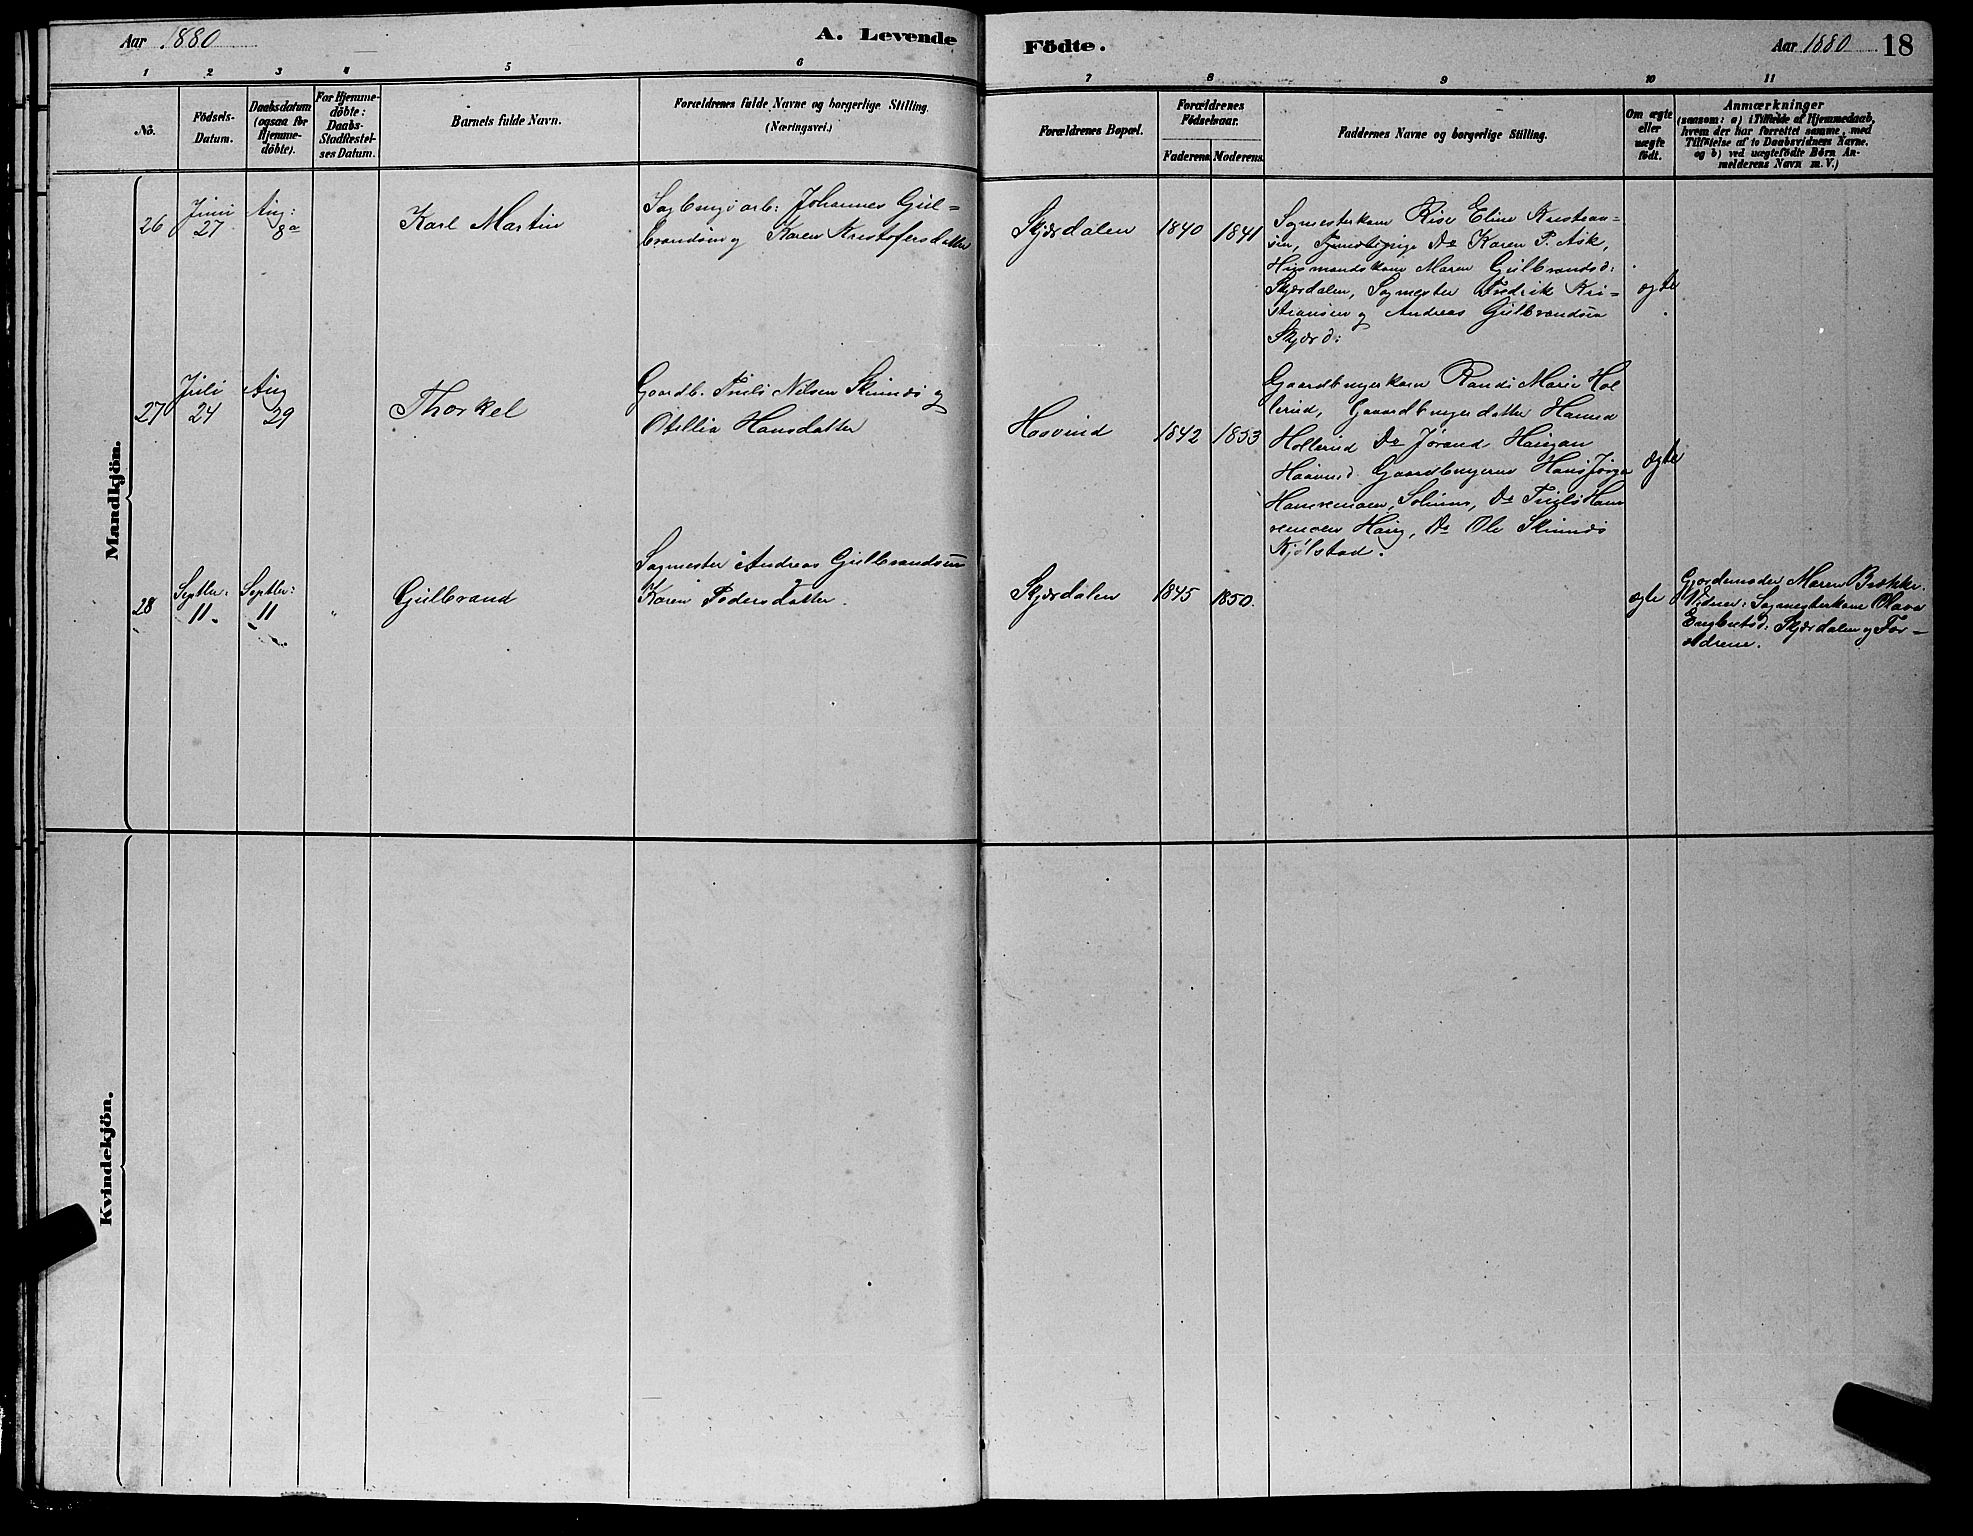 Aar 1880
A. Levende
Födte.
Aar 1880
18
1
2
3
4
5
6
7
8
9
10
11
No.
Födsels-
Datum.
Daabsdatum
(ogsaa for
Hjemme-
döbte).
For Hjemme-
döbte:
Daabs-
Stadfæstel-
ses Datum.
Barnets fulde Navn.
Forældrenes fulde Navne og borgerlige Stilling.
(Næringsvei.)
Forældrenes Bopæl.
Forældrenes
Födselsaar.
Faderens.
Moderens.
Faddernes Navne og borgerlige Stilling.
Om ægte
eller
uægte
födt.
Anmærkninger
(saasom: a) i Tilfælde af Hjemmedaab,
hvem der har forrettet samme, med
Tilföielse af to Daabsvidners Navne,
og b) ved uægtefödte Börn An-
melderens Navn m. V.)
Mandkjön.
26
Juni
27
Aug:
8
Karl Martin
Sagbrugsarb: Johannes Gul-
brandsen og Karen Kristofersdatter
Skjærdalen
1840
1841
Sagmesterkone Elise Kristian-
sen, Do Karen P. Ask,
Husmandskone Maren Gulbrandsd:
Skjærdalen, Sagmester Fredrik Kri-
stiansen og Andreas Gulbrandsen
Skjærd:
ægte
27
Juli
24
Aug
29
Thorkel
Gaardb. Truls Nilsen Skinnes og
Otillia Hansdatter
Haavind
1842
1853
Gaardbrugerkone Randi Marie Hol
lerud, Gaardbrugerdatter Hanna
Hollerud Do Jørand Haugan
Gaardbrugerne Hans Jørgen
Solum, Do Truls
Haug, Do Ole Skinnes
Kjølstad.
ægte
28
Septbr:
11
Septbr:
11
"
Gulbrand
Sagmester Andreas Gulbrandsen
Karen Pedersdatter.
Skjærdalen
1845
1850.
ægte
Gjordemoder Maren Brække.
Vidner: Sagmesterkone Olava
Engbretsd: Skjærdalen og For-
ældrene.
Kvindekjön.